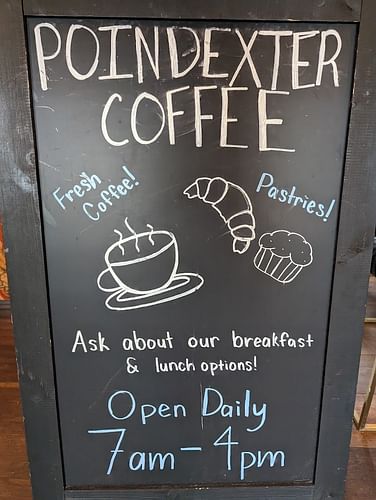 POINDEXTER
COFFEE
Fresh
Coffee!
Pastries!
Ask about our breakfast
& lunch options!
Open Daily
7am - 4pm